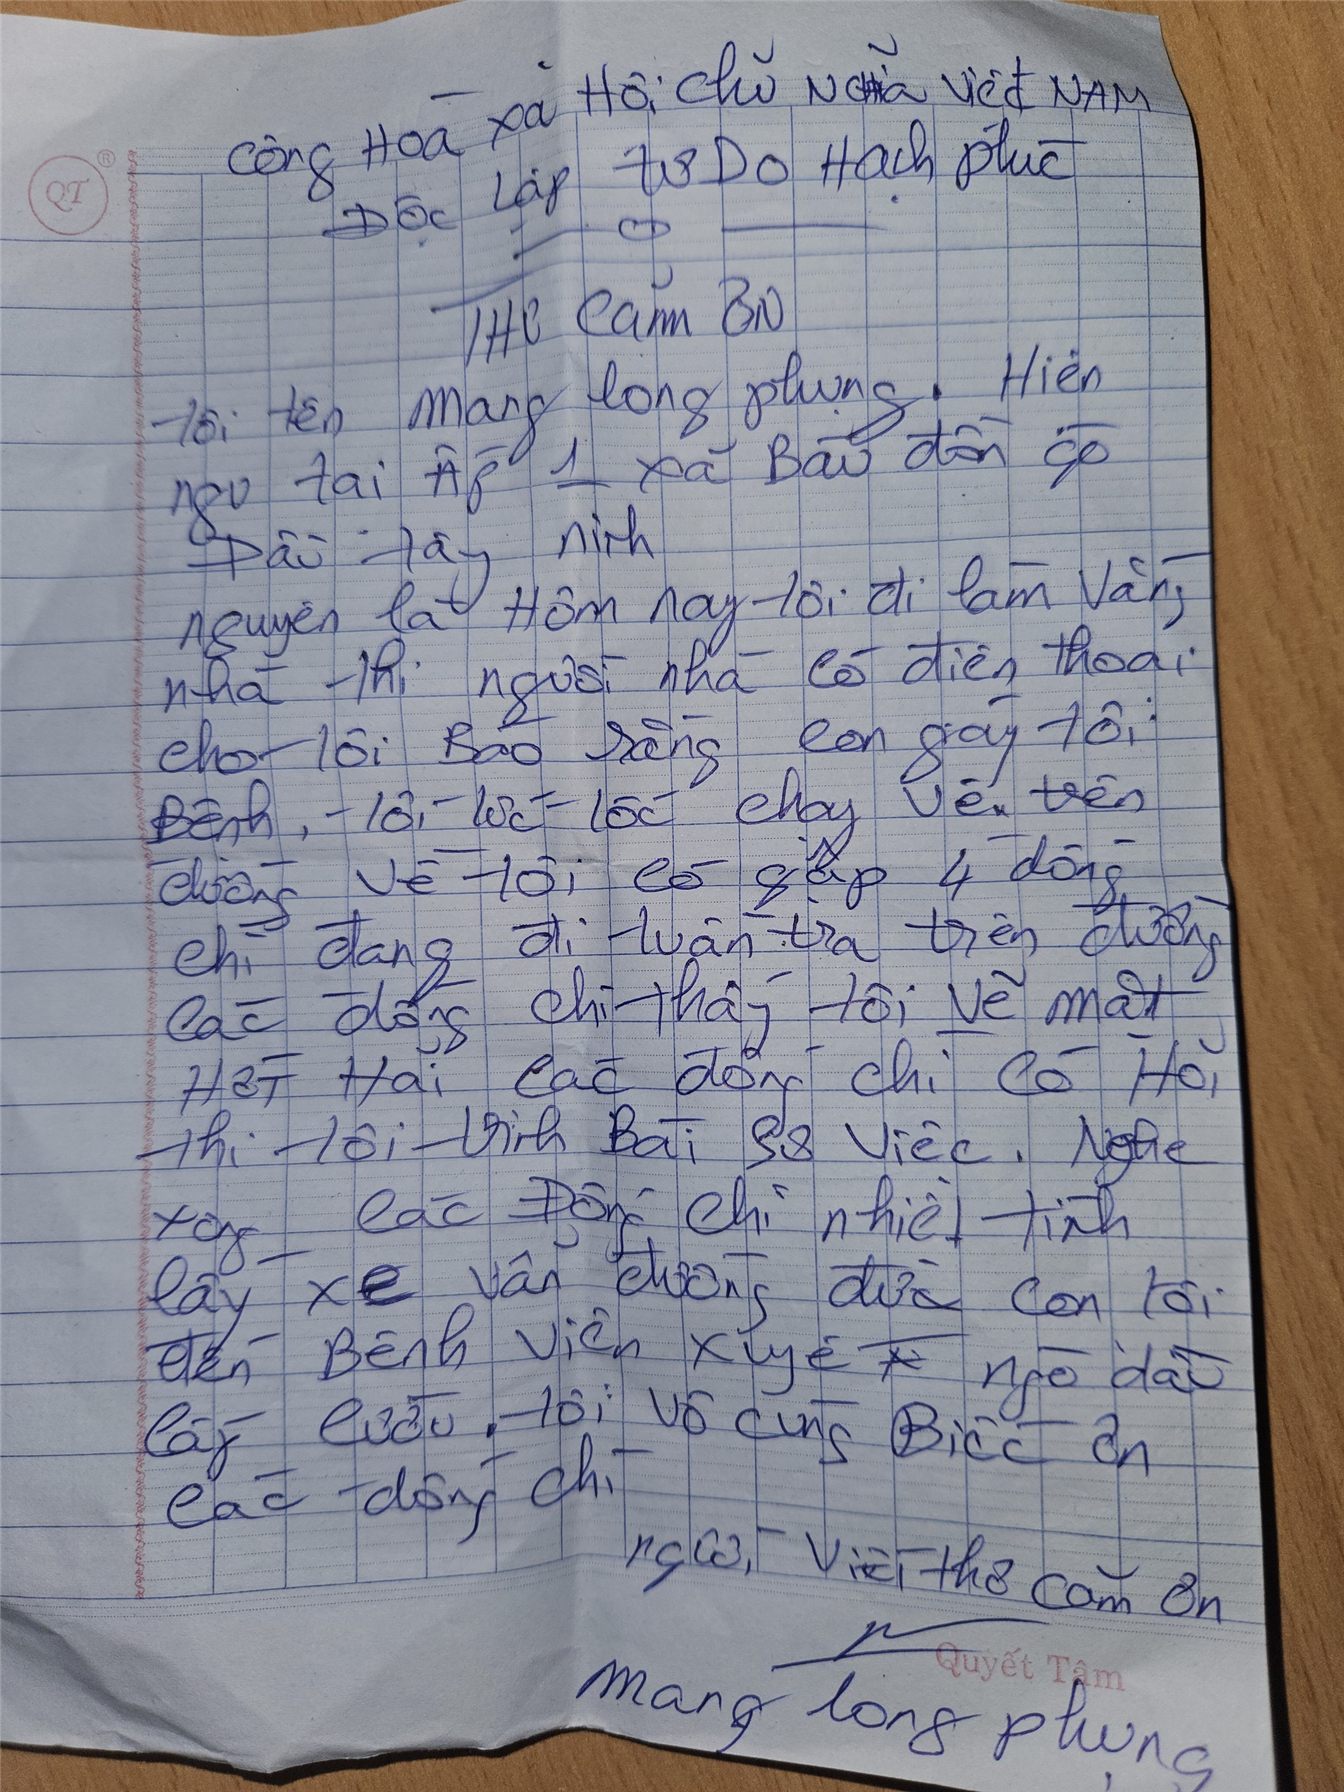 QT ®
Công Hoà xã Hội chủ Nghĩa việt NAM
Độc Lập tự Do Hạch phúc
THƯ Cảm ƠN
tôi tên mang long phụng. Hiên
ngu tai Ấp 1 xã Bầu đồn gò
Dầu tây ninh
nguyên là Hôm nay tôi đi làm Vắng
nhà thì người nhà có điên thoai
cho tôi Báo rằng con gáy tôi
Bênh, tôi tức tốc chay về trên
đường về tôi có gặp 4 đồng
chí đang đi tuần tra trên đường
các đồng chí thấy tôi vẽ mặt
Hớt Hải các đồng chí có Hỏi
thì tôi trình Bài sự viêc. Nghe
xong các Đồng chí nhiêt tình
lấy xe vân đường đưa con tôi
đến Bênh viên xuyê ngõ dầu
cấy cườu. tôi vô cùng Biếc ơn
các đồng chí
người viết thơ cảm ơn
Quyết Tâm
mang long phụng